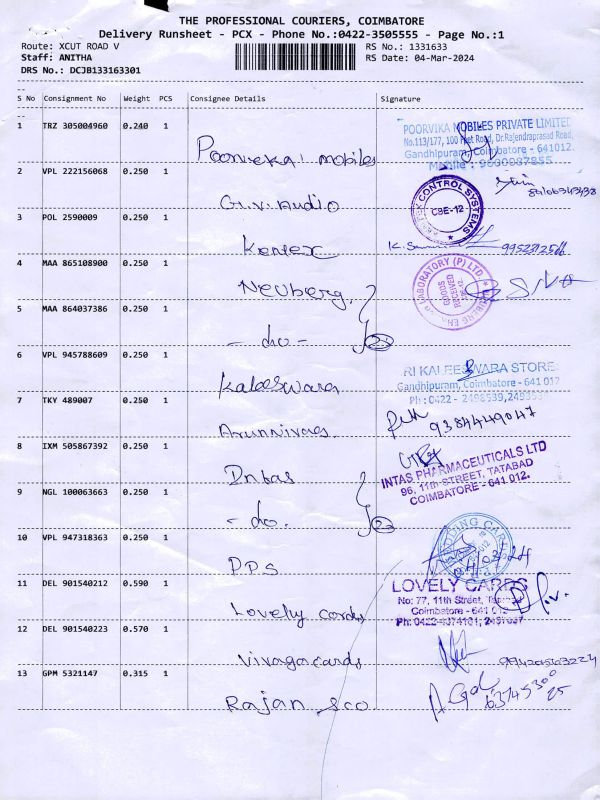 THE PROFESSIONAL COURIERS, COIMBATORE
Delivery Runsheet - PCX - Phone No.:0422-3505555 - Page No.:1
Route: XCUT ROAD V RS No.: 1331633
Staff: ANITHA RS Date: 04-Mar-2024
DRS No.: DCJB133163301
S No Consignment No Weight PCS Consignee Details Signature
1 TRZ 305004960 0.240 1
POORVIKA MOBILES PRIVATE LIMITED
No.113/177, 100 Feet Road, Dr.Rajendraprasad Road,
Gandhipuram, Coimbatore - 641012.
Mobile : 9600087855
Poorvika mobiles
2 VPL 222156068 0.250 1
G.V. Audio
3 POL 2590009 0.250 1
CONTROL SYSTEMS
CBE-12
Kemex
4 MAA 865108900 0.250 1
Neuberg
LABORATORY (P) LTD.
GOODS
RECEIVED
5 MAA 864037386 0.250 1
- do -
6 VPL 945788609 0.250 1
RI KALEESWARA STORE
Gandhipuram, Coimbatore - 641 012
Ph : 0422 - 2498539,
Kaleeswara
7 TKY 489007 0.250 1
9384449047
Arunnivas
8 IXM 505867392 0.250 1
Intas
INTAS PHARMACEUTICALS LTD
96, 11th STREET, TATABAD
COIMBATORE - 641 012.
9 NGL 100063663 0.250 1
- do.
10 VPL 947318363 0.250 1
PPS
11 DEL 901540212 0.590 1
LOVELY CARDS
No: 77, 11th Street,
Coimbatore - 641 012
Lovely cards
12 DEL 901540223 0.570 1
Vinaga cards
13 GPM 5321147 0.315 1
Rajan &co